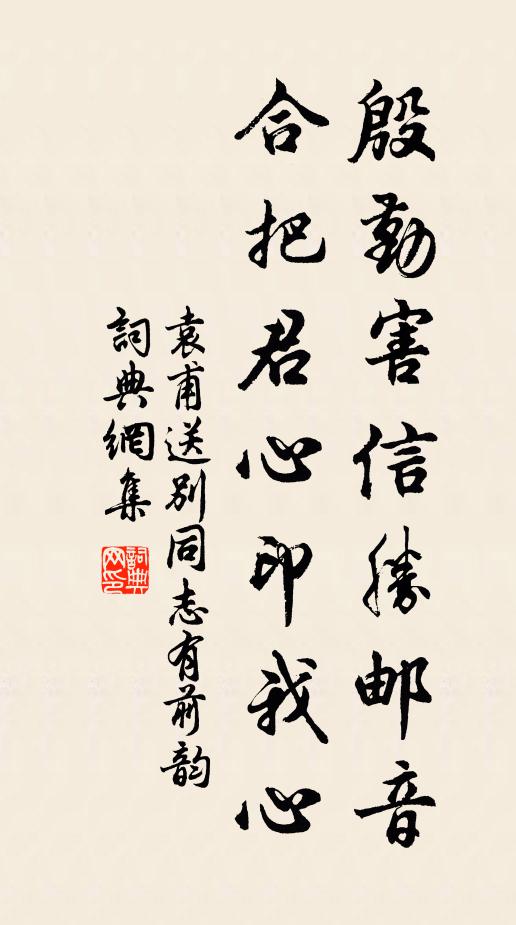 殷勤害信勝邮音
合把君心印我心
袁甫送別同志有前韵
詞典網集
詞典网印